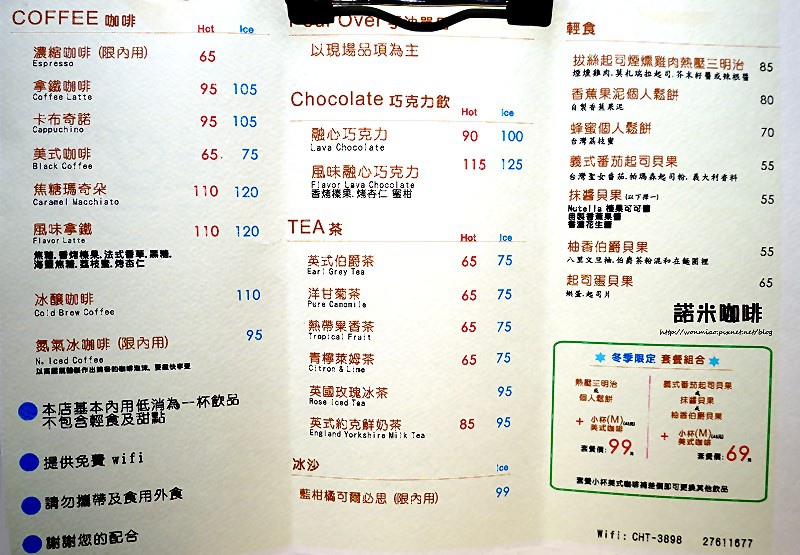 COFFEE 咖啡
Hot Ice
濃縮咖啡 (限內用) 65
Espresso
拿鐵咖啡 95 105
Coffee Latte
卡布奇諾 95 105
Cappuchino
美式咖啡 65 75
Black Coffee
焦糖瑪奇朵 110 120
Caramel Macchiato
風味拿鐵 110 120
Flavor Latte
焦糖.香烤榛果.法式香草.黑糖.
海鹽焦糖.荔枝蜜.烤杏仁
冰釀咖啡 110
Cold Brew Coffee
氮氣冰咖啡 (限內用) 95
N₂ Iced Coffee
本店基本內用低消為一杯飲品
不包含輕食及甜點
提供免費 wifi
請勿攜帶及食用外食
謝謝您的配合
Pour Over
以現場品項為主
Chocolate 巧克力飲
Hot Ice
融心巧克力 90 100
Lava Chocolate
風味融心巧克力 115 125
Flavor Lava Chocolate
香烤榛果.烤杏仁 蜜柑
TEA 茶
Hot Ice
英式伯爵茶 65 75
Earl Grey Tea
洋甘菊茶 65 75
Pure Camomile
熱帶果香茶 65 75
Tropical Fruit
青檸萊姆茶 65 75
Citron & Lime
英國玫瑰冰茶 95
Rose Iced Tea
英式約克鮮奶茶 85 95
England Yorkshire Milk Tea
冰沙
Ice
藍柑橘可爾必思 (限內用) 99
輕食
拔絲起司煙燻雞肉熱壓三明治 85
煙燻雞肉.莫札瑞拉起司.芥末籽醬或辣根醬
香蕉果泥個人鬆餅 80
自製香蕉果泥
蜂蜜個人鬆餅 70
台灣荔枝蜜
義式番茄起司貝果 55
台灣聖女番茄.帕瑪森起司粉.義大利香料
抹醬貝果 (以下擇一) 55
Nutella 榛果可可醬
自製香蕉果醬
香濃花生醬
柚香伯爵貝果 55
八里文旦柚.伯爵茶粉混和在麵團裡
起司蛋貝果 65
烘蛋.起司片
諾米咖啡
http://wonmiao.pixnet.net/blog
冬季限定 套餐組合
熱壓三明治
或
個人鬆餅
+ 小杯(M)
美式咖啡
套餐價: 99元
義式番茄起司貝果
或
抹醬貝果
或
柚香伯爵貝果
+ 小杯(M)
美式咖啡
套餐價: 69元
套餐小杯美式咖啡補差價即可更換其他飲品
Wifi: CHT-3898 27611677